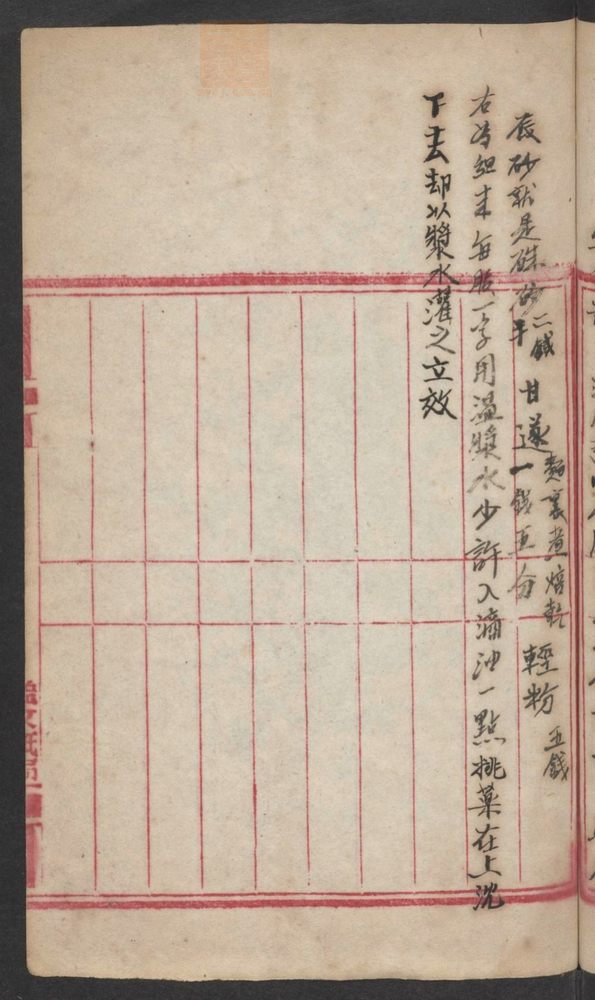 辰砂就是硃砂二錢半 甘遂一錢五分 麵裹煮焙乾 輕粉五錢
右為細末每服一字用温漿水少許入滴油一點挑藥在上沈
下去却以漿水灌之立效